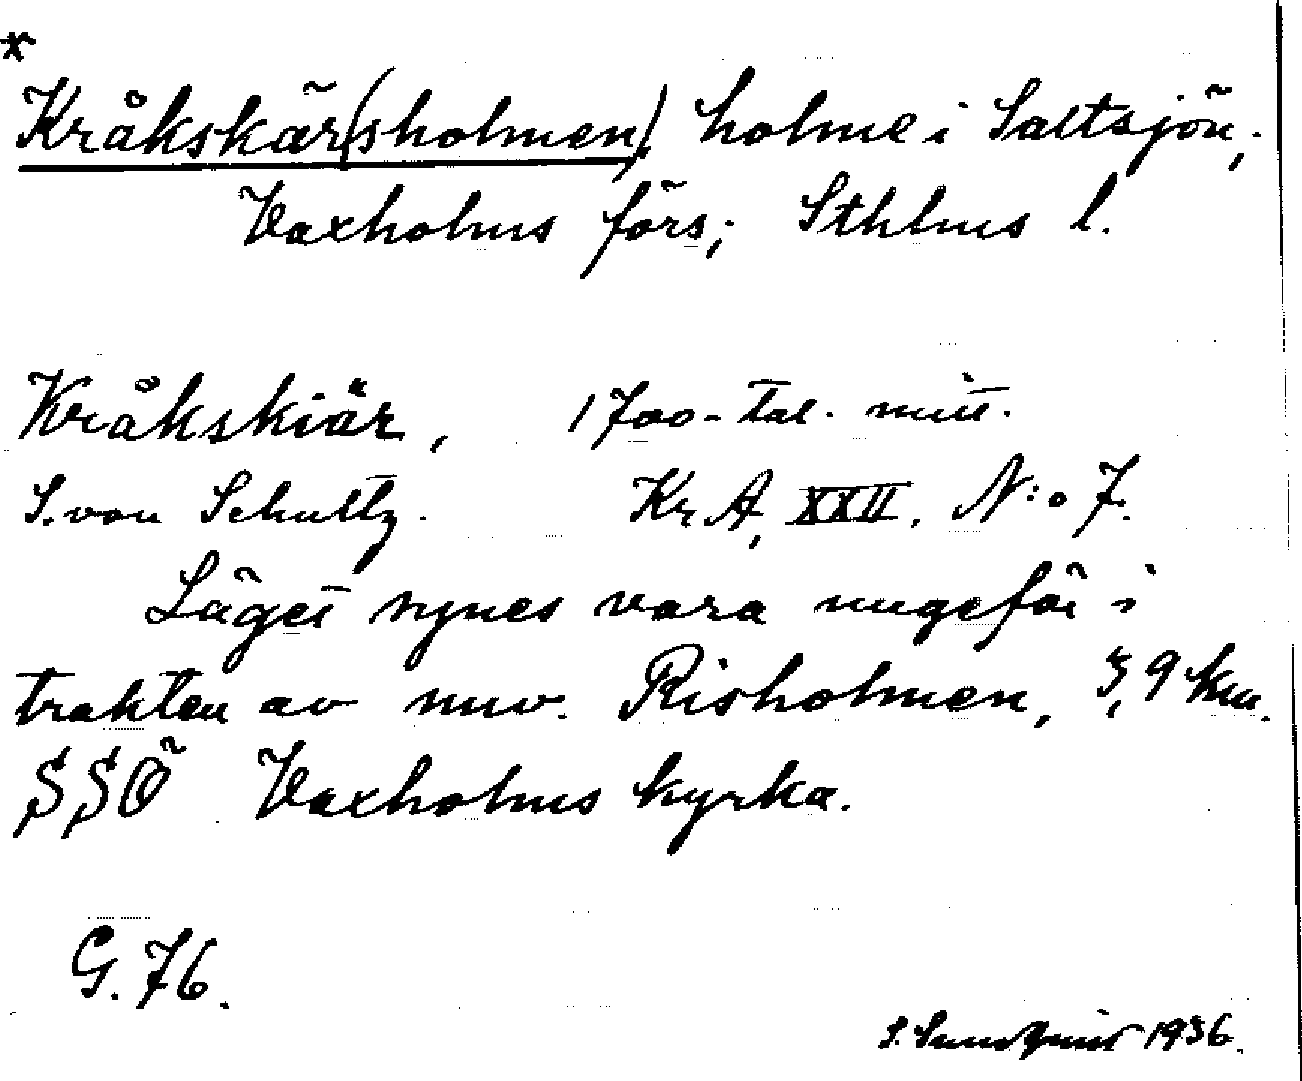 *
Kråkskär(sholmen), holme i Saltsjön,
Vaxholms förs; Sthlms l.
Kråkskiär, 1700-tal. mitt.
S. von Schultz. Kr A, XXII, N:o 7.
Läget synes vara ungefär i
trakten av nuv. Risholmen, 3,9 km.
SSÖ Vaxholms kyrka.
G. 76.
S. Sundquist 1936.